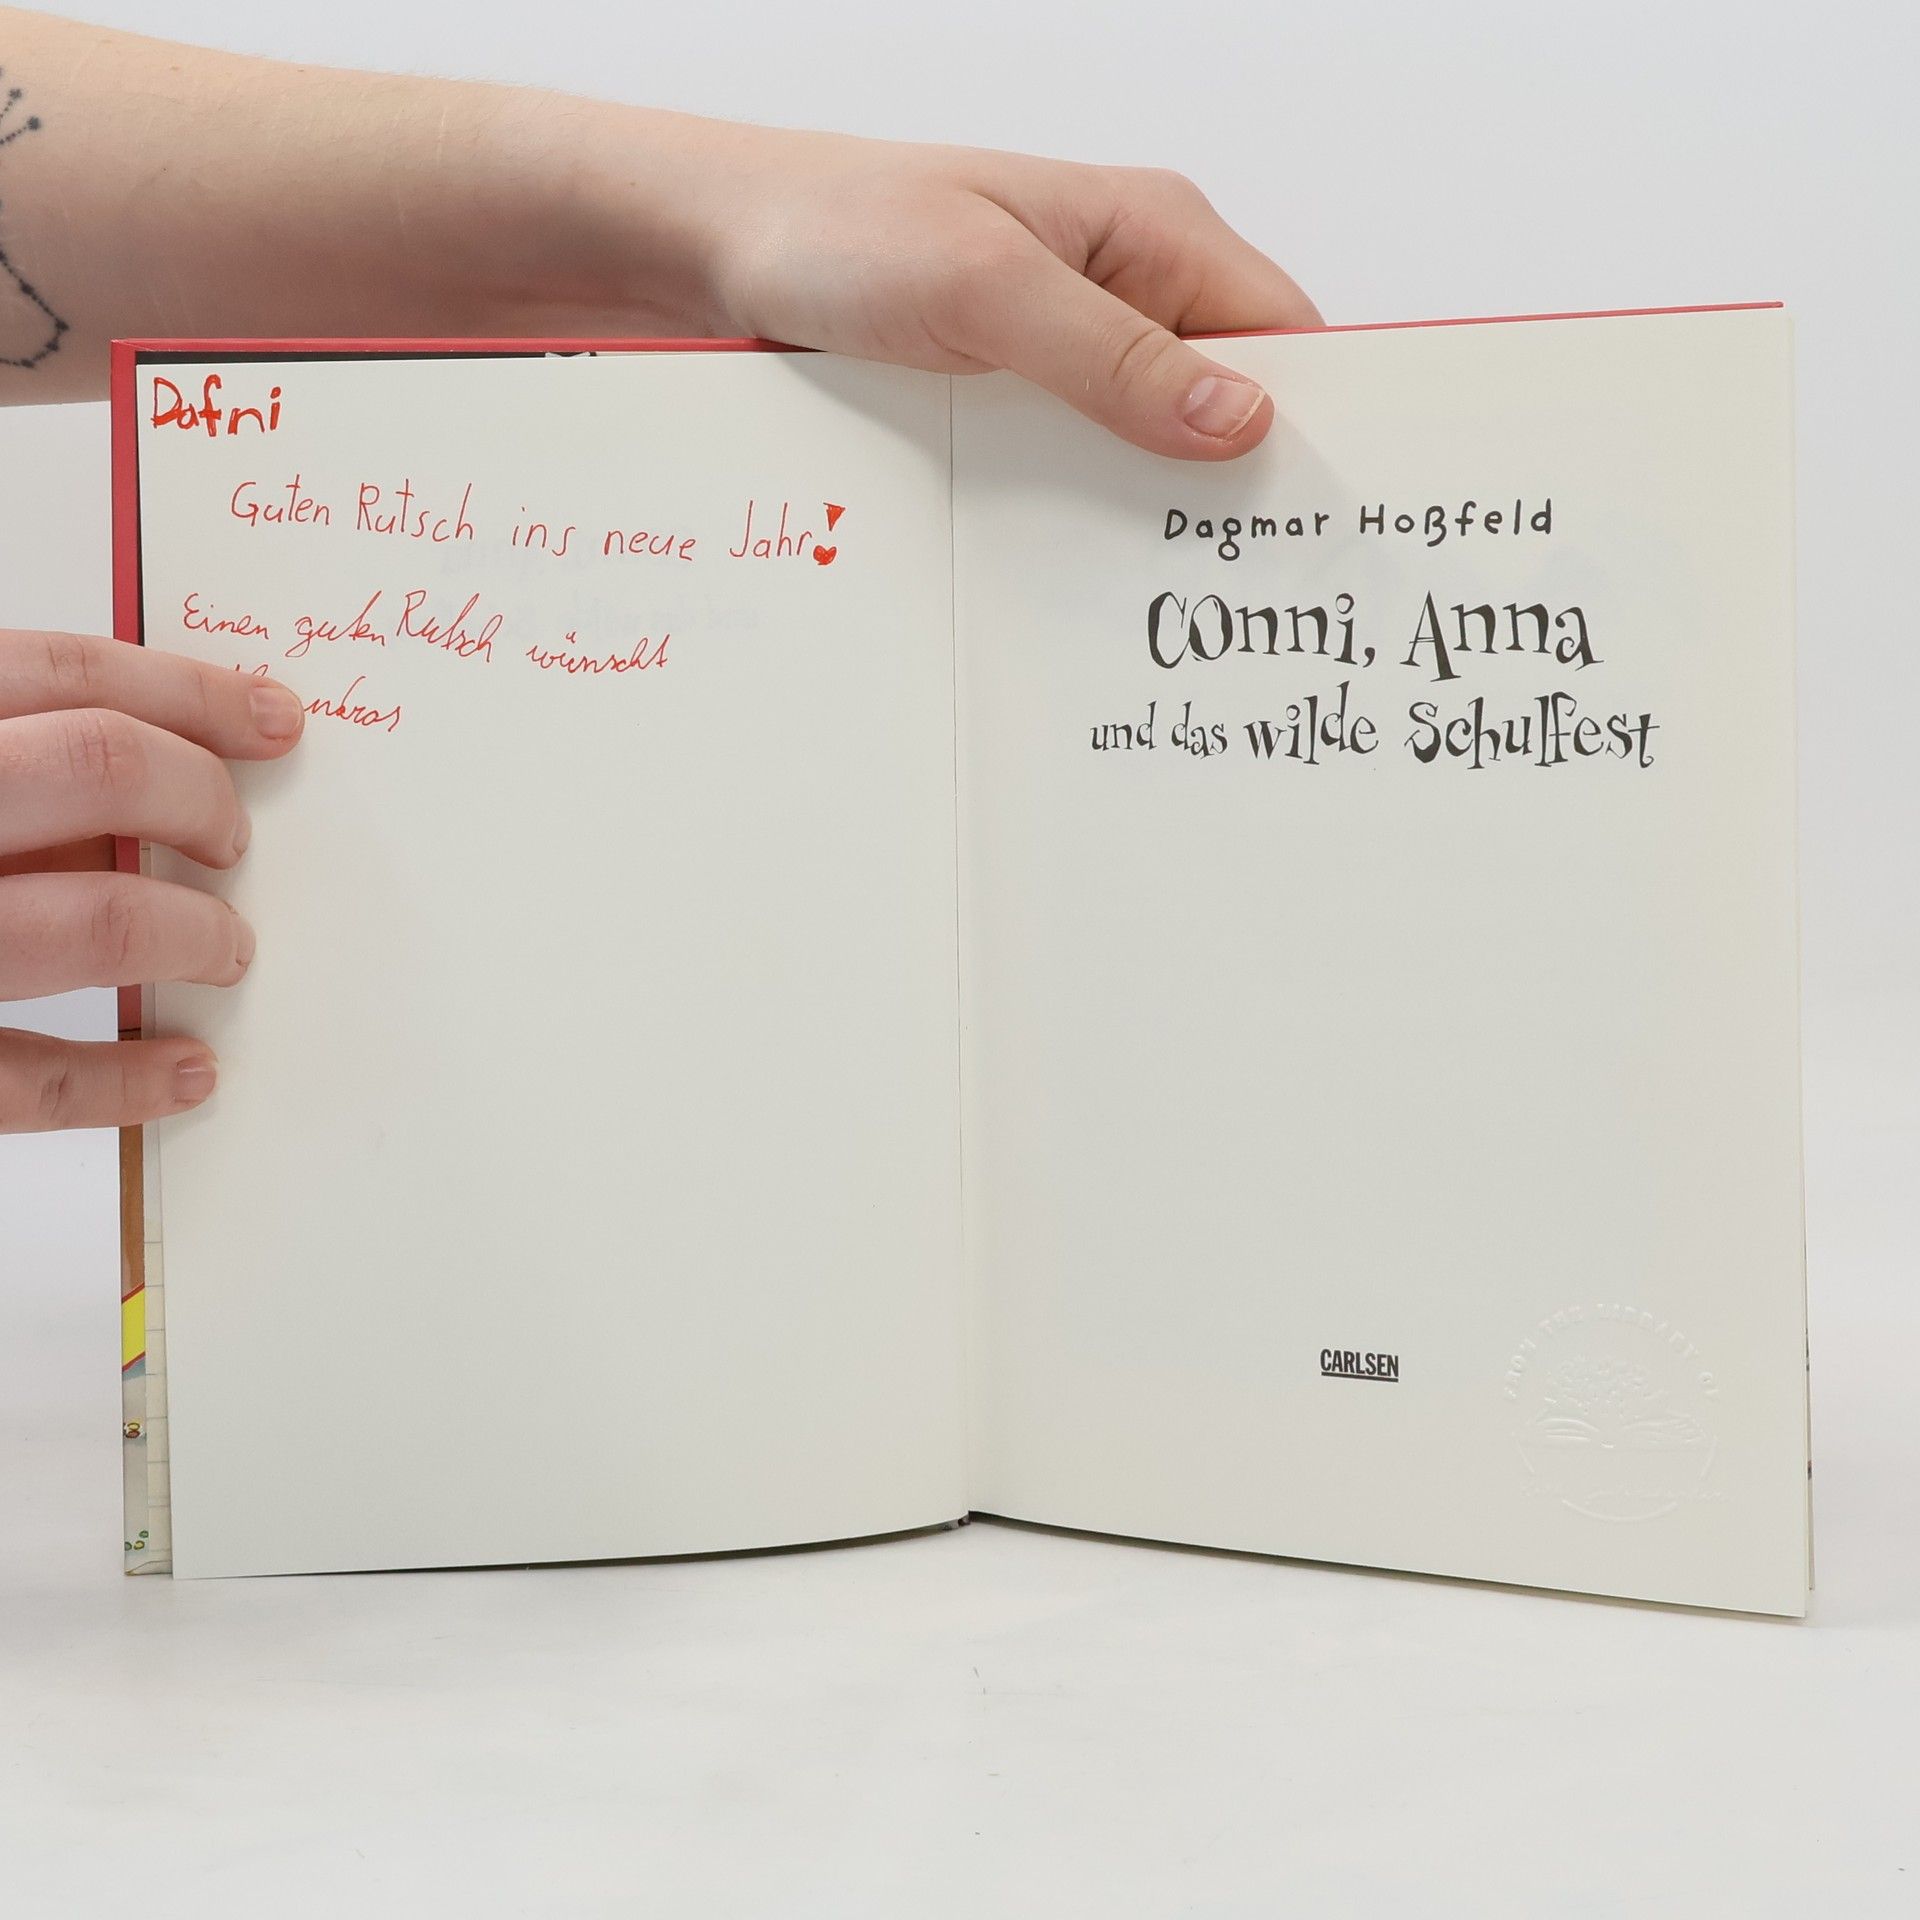 Dafni
Guten Rutsch ins neue Jahr!
Einen guten Rutsch wünscht
Dagmar Hoßfeld
Conni, Anna
und das wilde Schulfest
CARLSEN
FROM THE LIBRARY OF